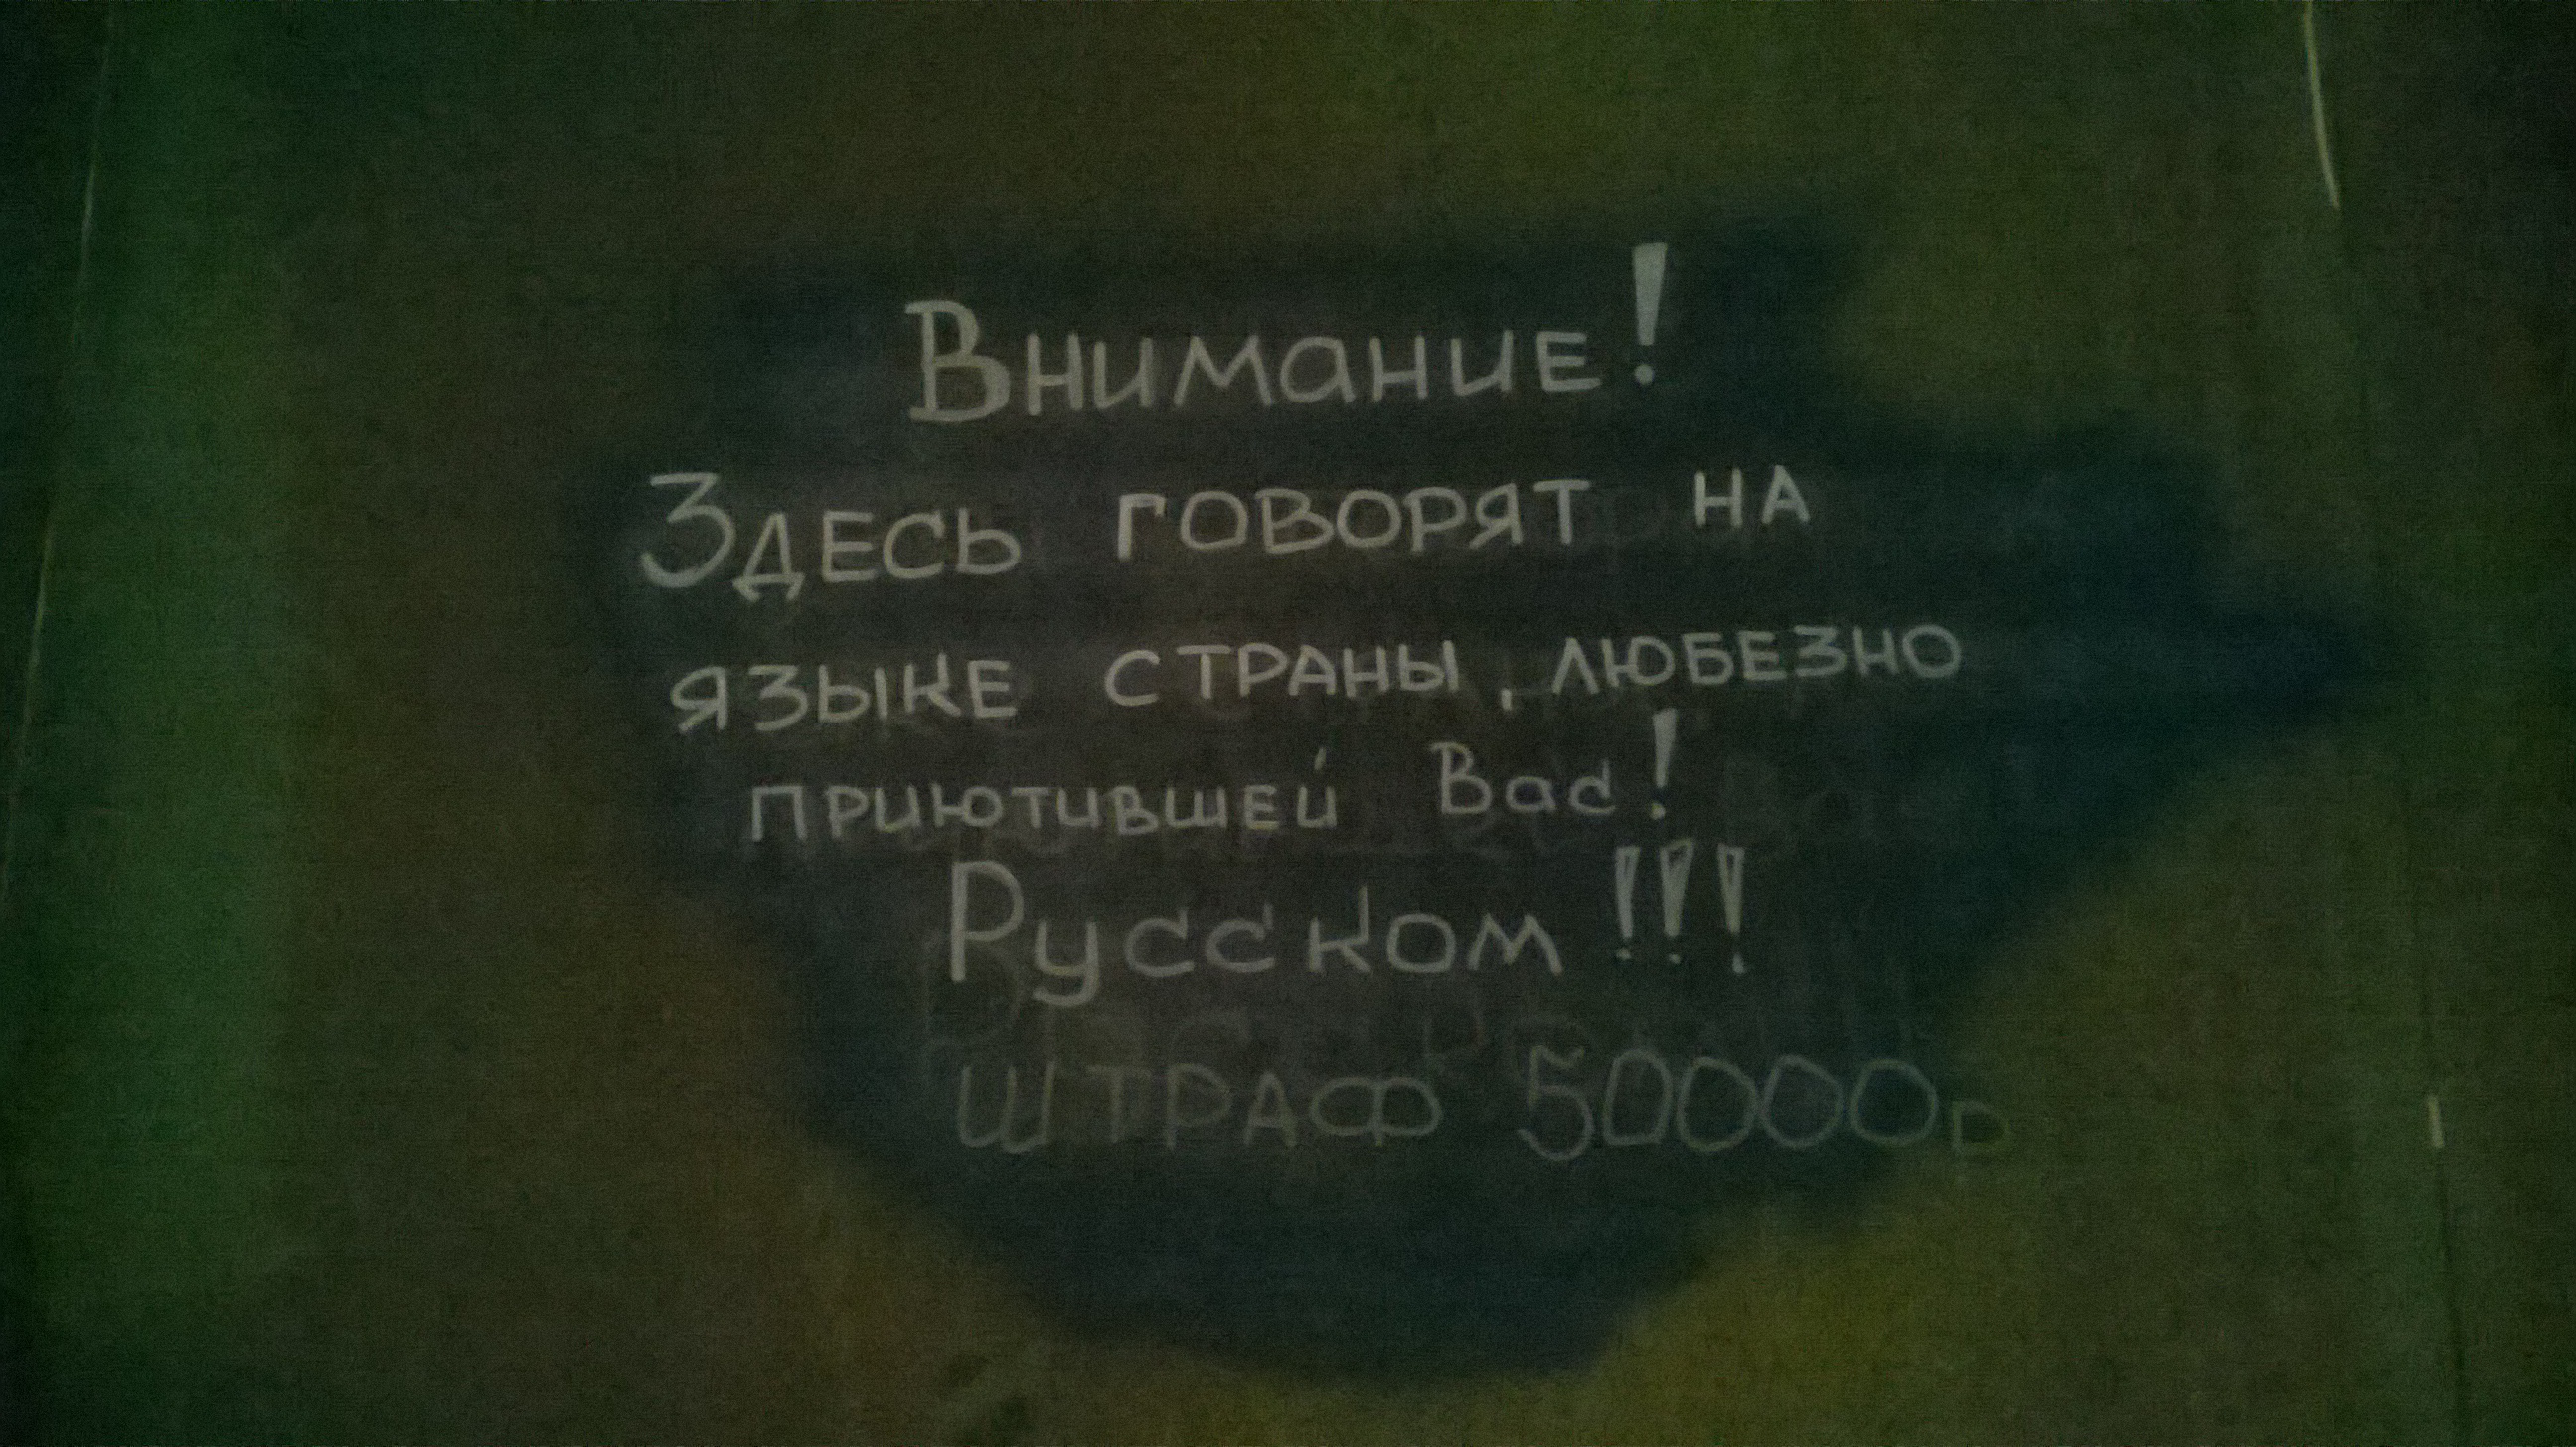 Внимание!
Здесь говорят на
языке страны, любезно
приютившей Вас!
Русском!!!
штраф 50000р